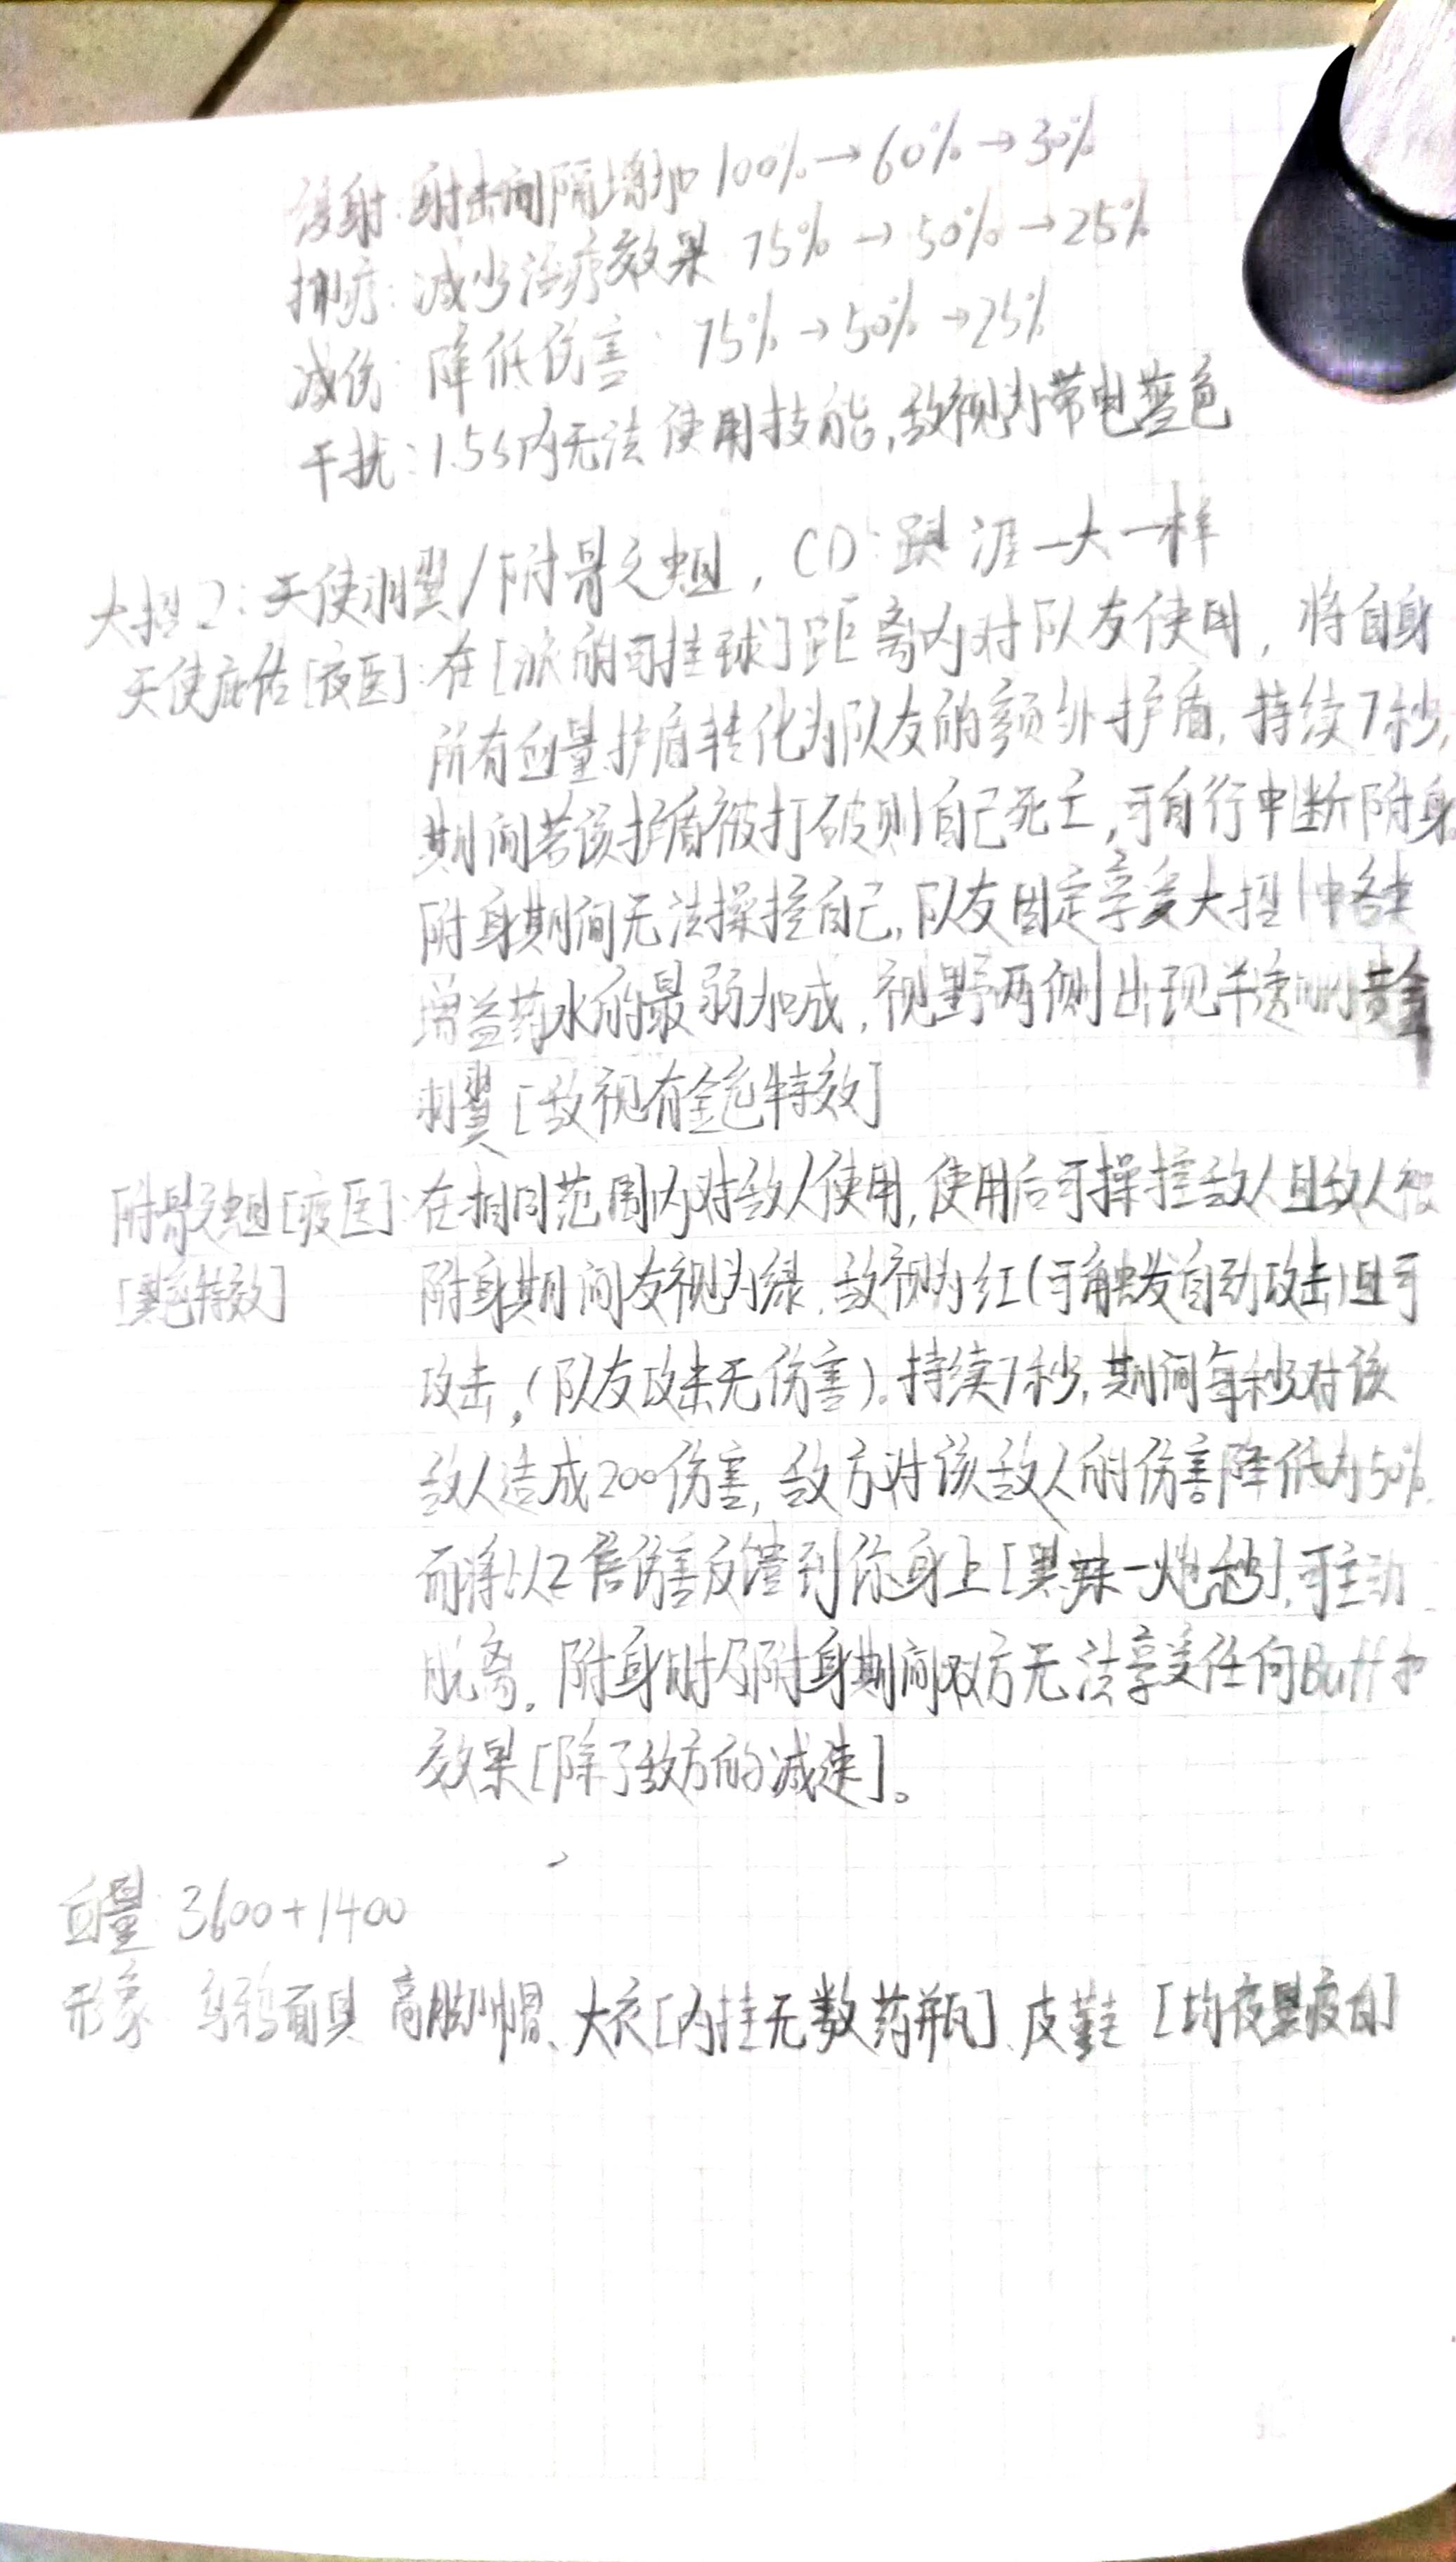 缓射:射击间隔增加 100%→60%→30%
抑疗:减少治疗效果 75%→50%→25%
减伤:降低伤害:75%→50%→25%
干扰:1.5s内无法使用技能,敌视为带电蓝色
大招2:天使羽翼/附骨之蛆,CD:跟涯一大一样
天使庇佑[夜医]:在[派的可挂球]距离内对队友使用,将自身
所有血量护盾转化为队友的额外护盾,持续7秒,
期间若该护盾被打破则自己死亡,可自行中断附身
附身期间无法操控自己,队友固定享受大招1中各类
增益药水的最弱加成,视野两侧出现半透明黄金
羽翼[敌视有金色特效]
附骨之蛆[疫医]:在相同范围内对敌人使用,使用后可操控敌人且敌人被
[黑色特效]
附身期间友视为绿,敌视为红(可触发自动攻击)且可
攻击,(队友攻击无伤害)。持续7秒,期间每秒对该
敌人造成200伤害,敌方对该敌人的伤害降低为50%,
而将以2倍伤害反馈到你身上[黑辣一炮秒],可主动
脱离。附身时及附身期间双方无法享受任何Buff和
效果[除了敌方的减速]。
血量:3600+1400
形象 乌鸦面具 高脚帽、大衣[内挂无数药瓶]、皮鞋 [均夜黑疫白]